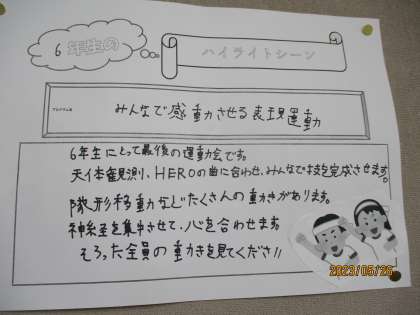 6年生の
ハイライトシーン
プログラム名
みんなで感動させる表現運動
6年生にとって最後の運動会です。
天体観測、HEROの曲に合わせ、みんなで技を完成させます。
隊形移動などたくさんの動きがあります。
神経を集中させて、心を合わせます。
そろった全員の動きを見てください!!
2023/05/26